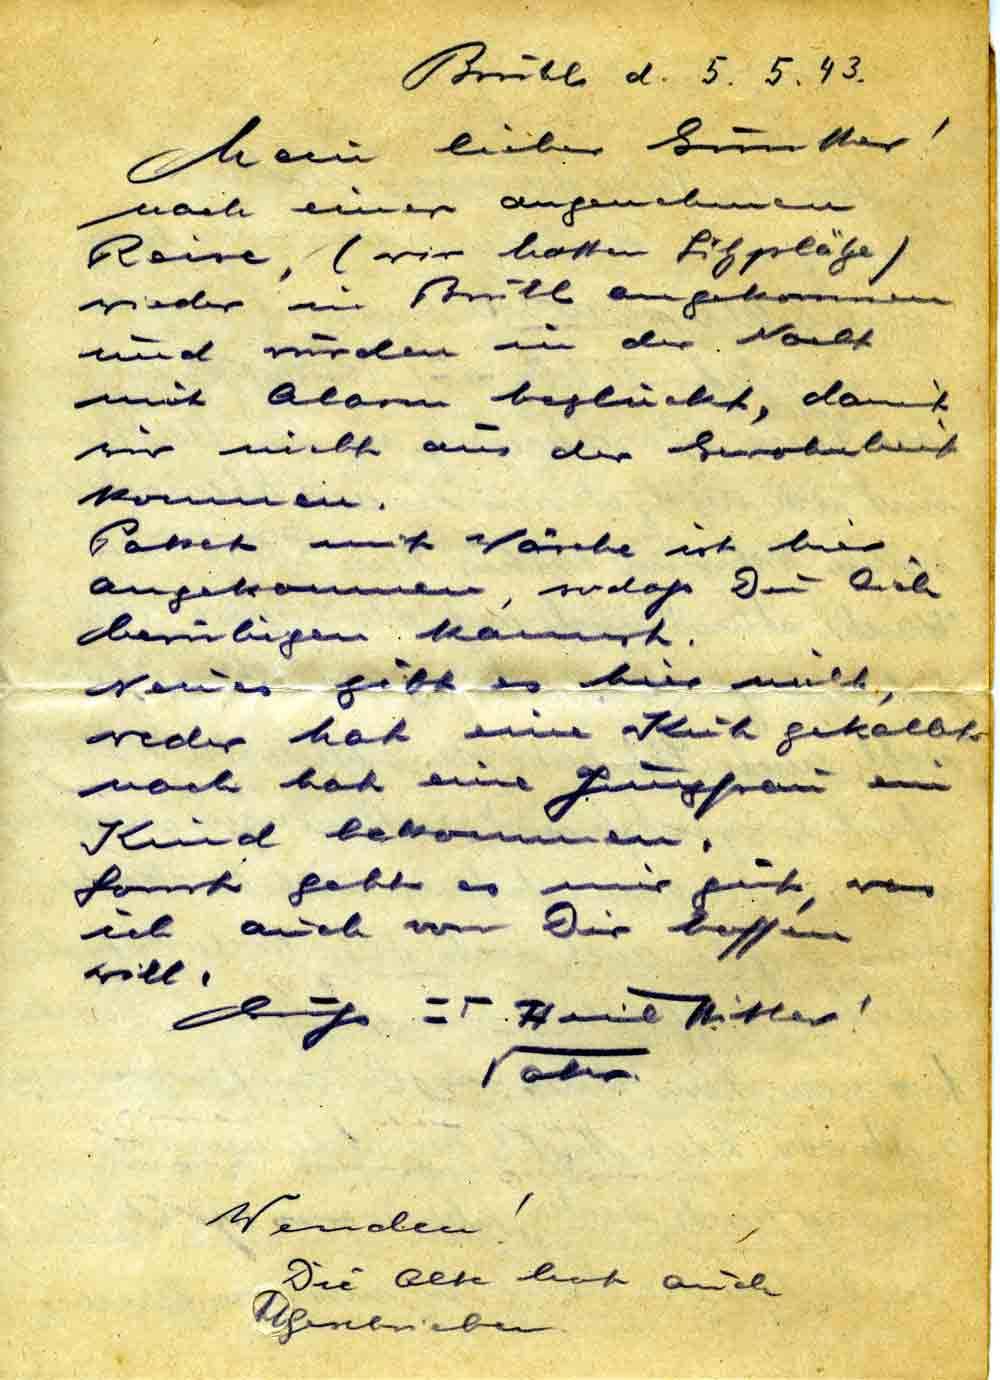 Brühl d. 5. 5. 43.
Mein lieber Günther!
nach einer angenehmen
Reise, (wir hatten Sitzplätze)
wieder in Brühl angekommen
und würden in der Nacht
mit Alarm beglückt, damit
wir nicht aus der Gewohnheit
kommen.
Paket mit Wäsche ist hier
angekommen, sodaß Du Dich
beruhigen kannst.
Neues gibt es hier nicht,
weder hat eine Kuh gekalbt
noch hat eine Jungfrau ein
Kind bekommen.
Sonst geht es mir gut, was
ich auch von Dir hoffen
will.
Heil Hitler!
Vater.
Wenden!
Die Alte hat auch
geschrieben